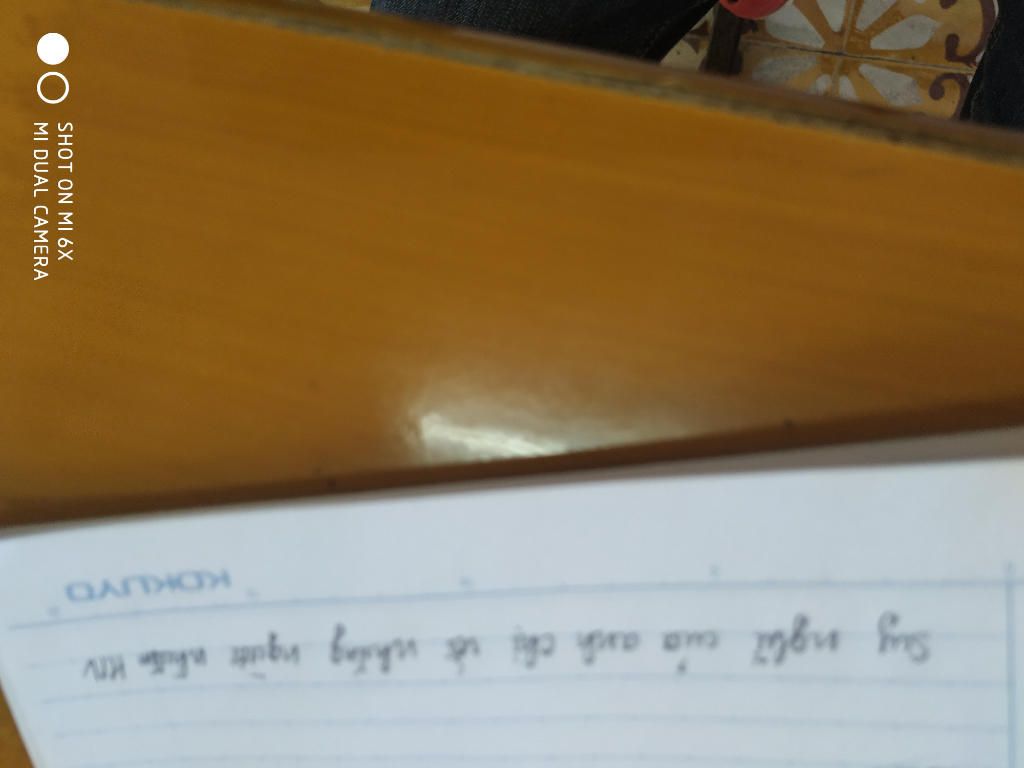 SHOT ON MI 6X
MI DUAL CAMERA
KOKUYO
Suy nghĩ của anh chị về những người nhiễm HIV